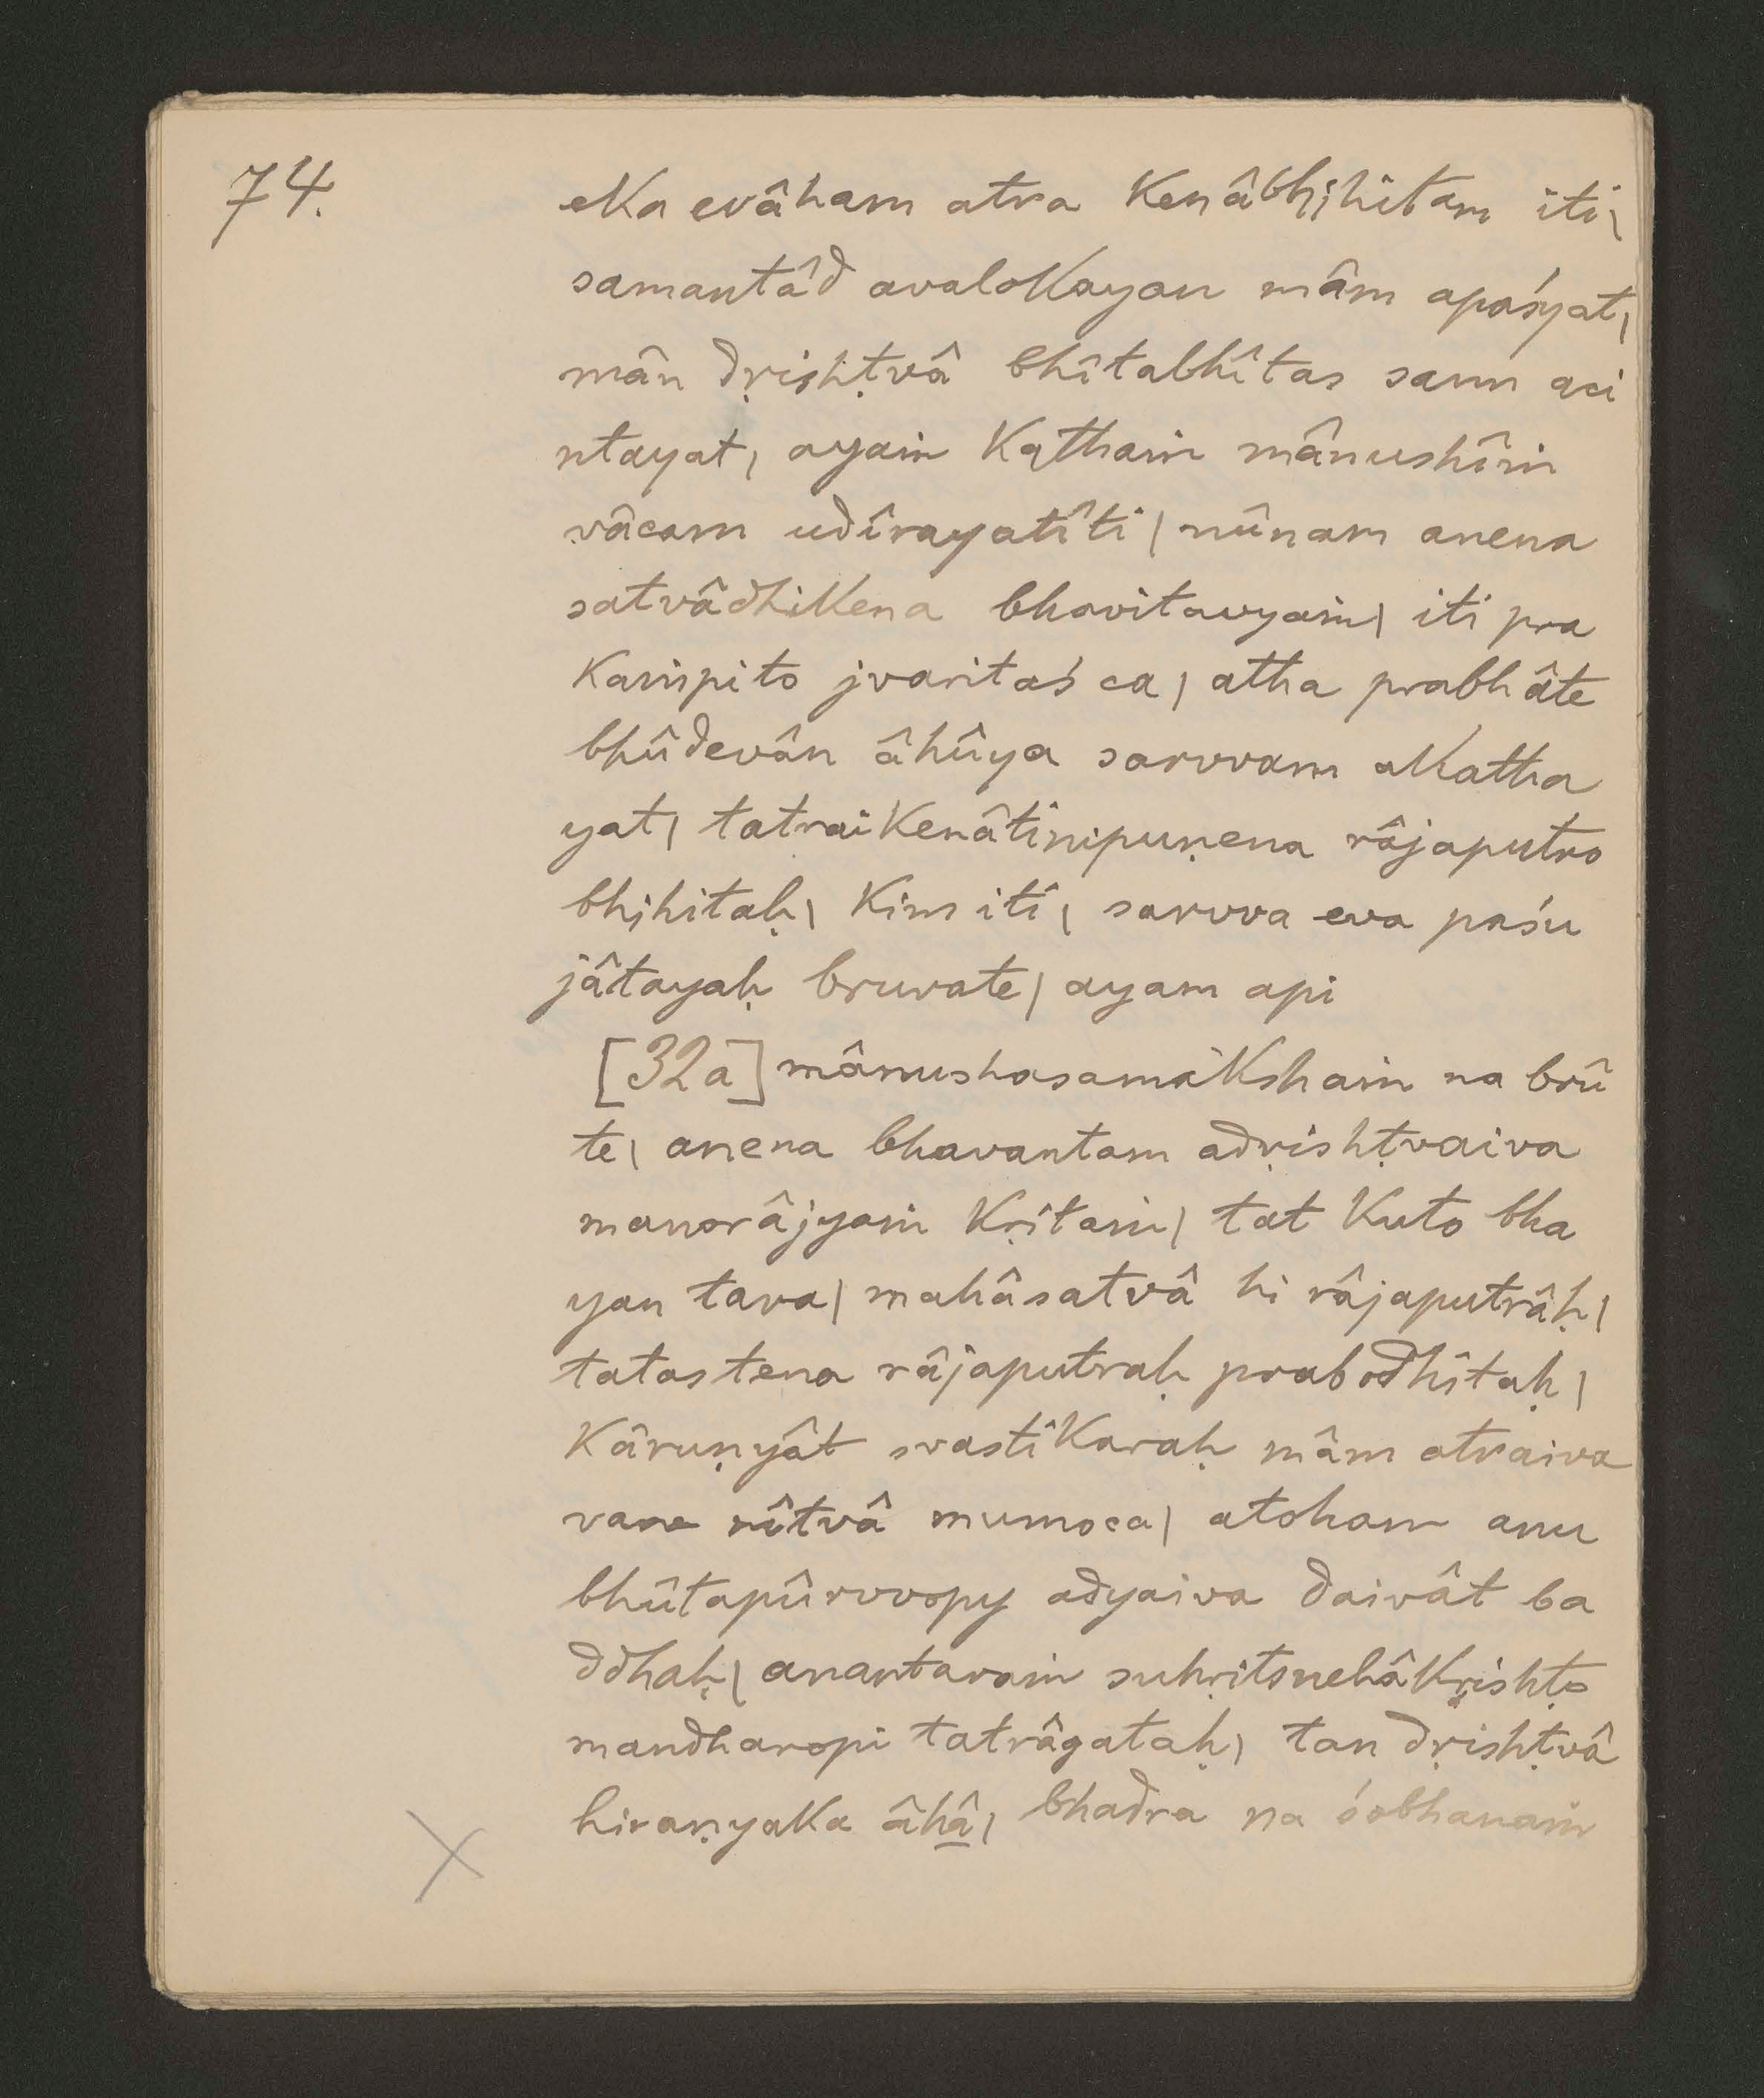 74.
eka evâham atra kenâbhihitam iti|
samantâd avalokayan mâm apaśyat|
mân dṛishṭvâ bhîtabhîtas sann aci
ntayat| ayaṁ kathaṁ mânushîṁ
vâcam udîrayatîti| nûnam anena
satvâdhikena bhavitavyaṁ| iti pra
kaṁpito jvaritaś ca| atha prabhâte
bhûdevân âhûya sarvvam akatha
yat| tatraikenâtinipuṇena râjaputro
bhihitaḥ| kim iti| sarvva eva paśu
jâtayaḥ bruvate| ayam api
[32a] mânushasamakshaṁ na brû
te| anena bhavantam adṛishṭvaiva
manorâjyaṁ kṛitaṁ| tat kuto bha
yan tava| mahâsatvâ hi râjaputrâḥ|
tatas tena râjaputraḥ prabodhitaḥ|
kâruṇyât svastîkaraḥ mâm atraiva
vane nîtvâ mumoca| atoham anu
bhûtapûrvvopy adyaiva daivât ba
ddhaḥ| anantaraṁ suhṛitsnehâkṛishṭo
mandharopi tatrâgataḥ| tan dṛishṭvâ
hiraṇyaka âhâ| bhadra na śobhanaṁ